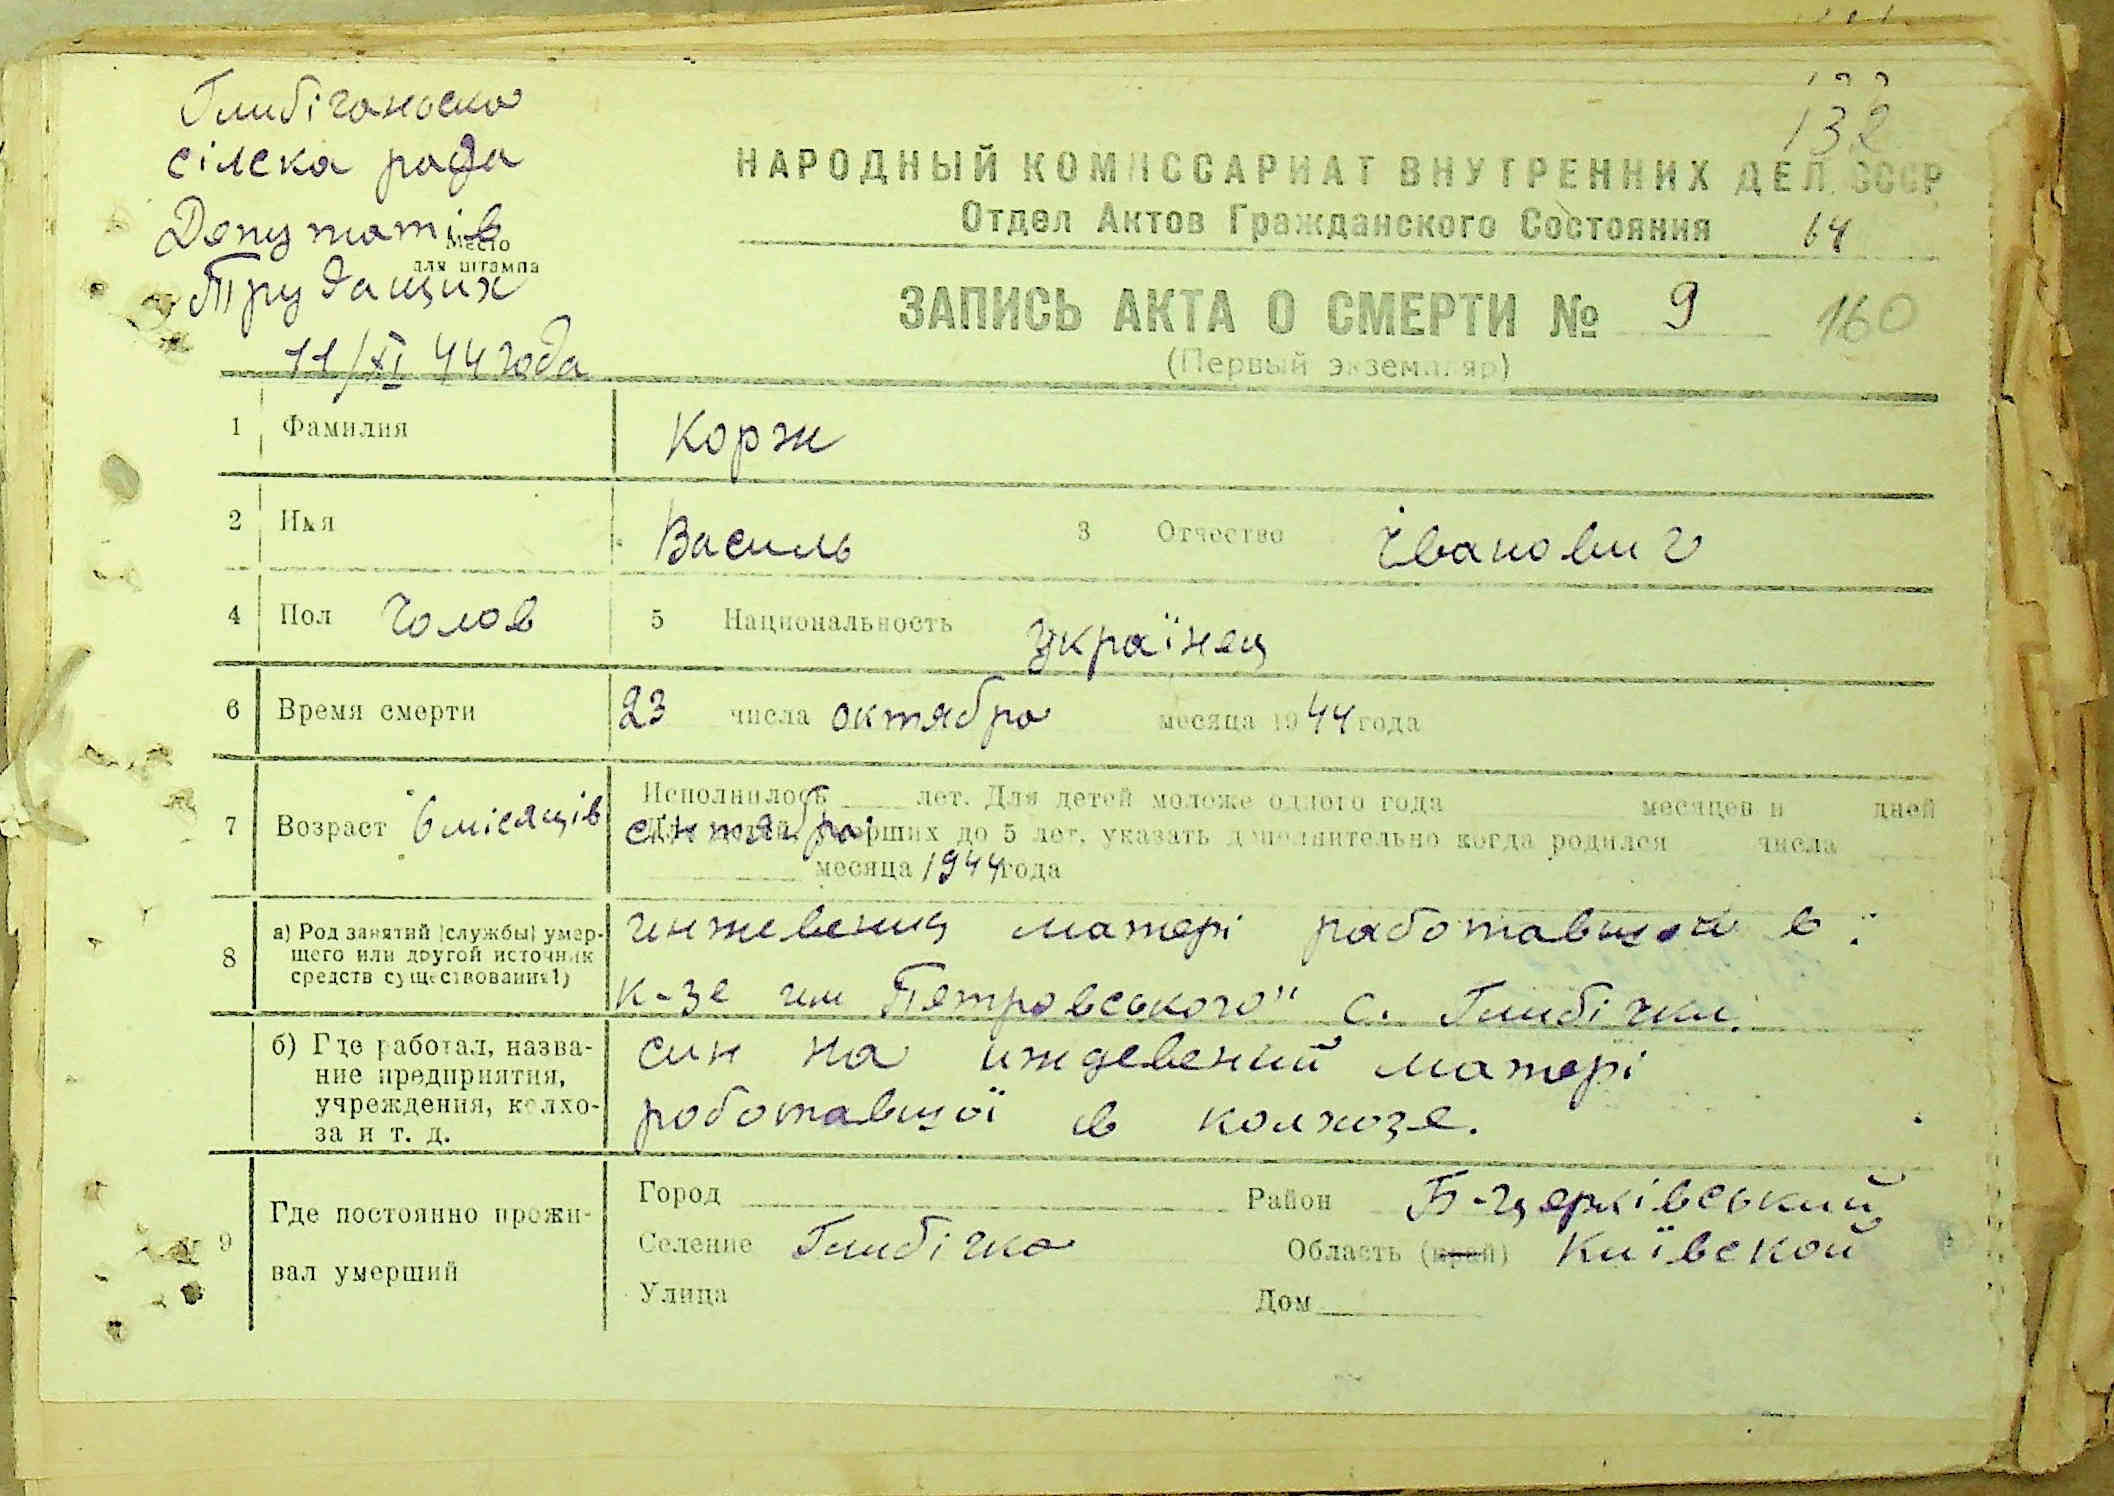 Глибічанська
сілска рада
Депутатів
Место
для штампа
Трудащих
11/XI 44 года
132
НАРОДНЫЙ КОМИССАРИАТ ВНУТРЕННИХ ДЕЛ СССР
Отдел Актов Гражданского Состояния 64
ЗАПИСЬ АКТА О СМЕРТИ № 9 160
(Первый экземпляр)
1 Фамилия Корж
2 Имя Василь 3 Отчество Іванович
4 Пол Чолов 5 Национальность українец
6 Время смерти 23 числа октября месяца 1944 года
7 Возраст 6 місяців Исполнилось лет. Для детей моложе одного года месяцев и дней
сентября умерших до 5 лет, указать дополнительно когда родился числа
месяца 1944 года
8 а) Род занятий (службы) умер-
щего или другой источник
средств существования1)
инжевениц матері работавшой в
к-зе им Петровського" с. Глибічки.
б) Где работал, назва-
ние предприятия,
учреждения, колхо-
за и т. д.
син на ижdевений матері
работавшої в колхозе.
9 Где постоянно прожи-
вал умерший
Город Район Б-Церківський
Селение Глибічка Область (край) Київской
Улица Дом